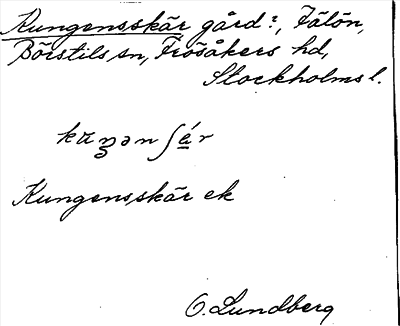 Kungensskär gård:, Fälön,
Börstils sn, Frösåkers hd,
Stockholms l.
Kungensskär ek
O. Lundberg